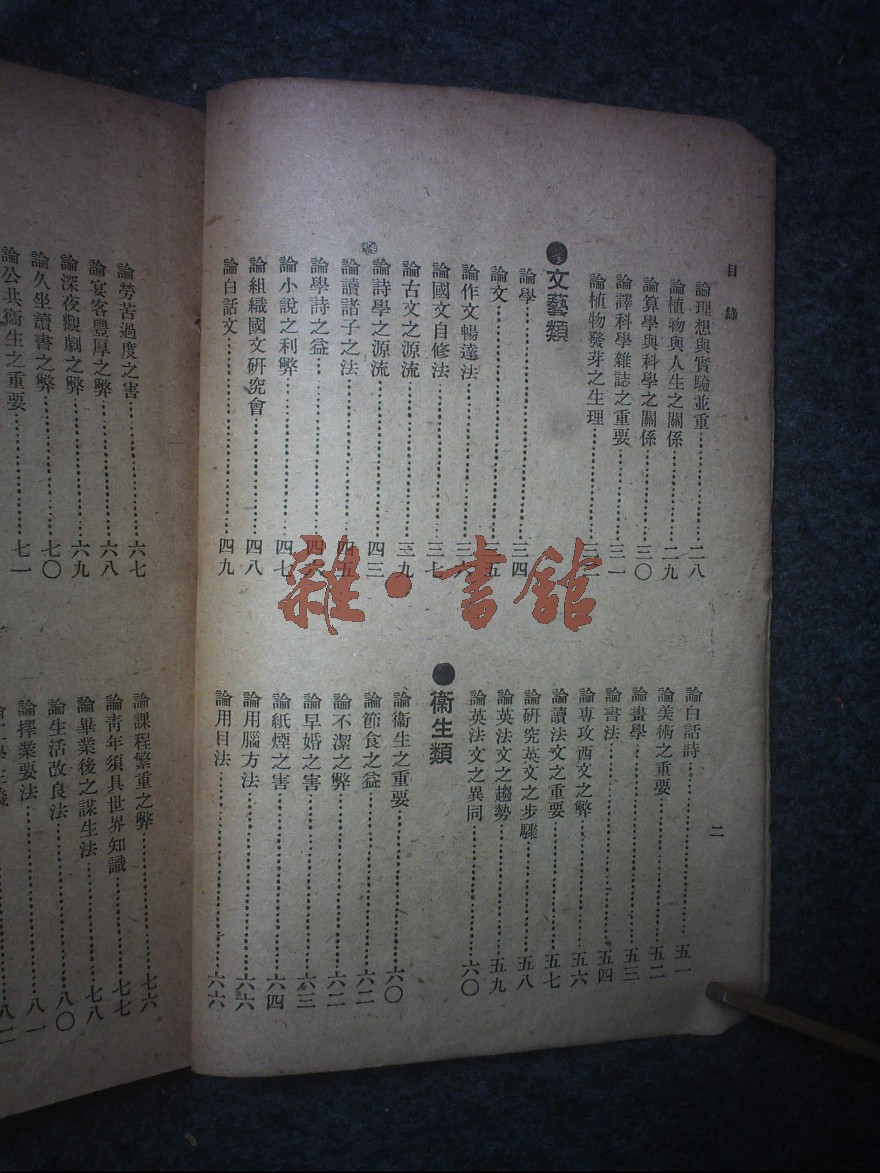 目錄
論理想與實驗並重……二八
論植物與人生之關係……二九
論算學與科學之關係……三〇
論譯科學雜誌之重要……三一
論植物發芽之生理……三二
●文藝類
論學……三四
論文……三五
論作文暢達法……三六
論國文自修法……三七
論古文之源流……三九
論詩學之源流……四三
論讀諸子之法……四五
論學詩之益……四六
論小說之利弊……四七
論組織國文研究會……四八
論白話文……四九
二
論白話詩……五一
論美術之重要……五二
論畫學……五三
論書法……五四
論專攻西文之弊……五六
論讀法文之重要……五七
論研究英文之步驟……五八
論英法文之趨勢……五九
論英法文之異同……六〇
●衞生類
論衞生之重要……六〇
論節食之益……六二
論不潔之弊……六二
論早婚之害……六三
論紙煙之害……六四
論用腦方法……六六
論用目法……六六
論勞苦過度之害……六七
論宴客豐厚之弊……六八
論深夜觀劇之弊……六九
論久坐讀書之弊……七〇
論公共衞生之重要……七一
論課程繁重之弊……七六
論靑年須具世界知識……七七
論畢業後之謀生法……七八
論生活改良法……八〇
論擇業要法……八一
八二
雜·書館